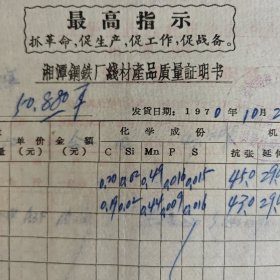 最高指示
抓革命，促生产，促工作，促战备。
湘潭鋼鉄厂綫材產品质量証明书
50.880
发货日期：1970年10月2
化学成份 机
单价 金额 C Si Mn P S 抗张 延伸
量（元）（元）
0.20 0.02 0.49 0.016 0.015 45.0 29
0.19 0.02 0.44 0.009 0.016 43.0 29